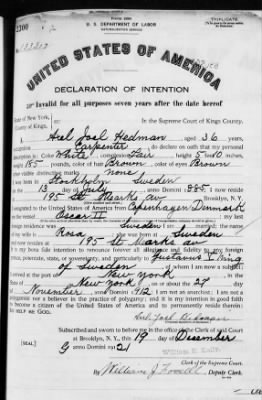 TRIPLICATE
U. S. DEPARTMENT OF LABOR
NATURALIZATION SERVICE
UNITED STATES OF AMERICA
DECLARATION OF INTENTION
Invalid for all purposes seven years after the date hereof
State of New York,
County of Kings,
In the Supreme Court of Kings County.
I, Axel Joel Hedman aged 36 years,
occupation Carpenter, do declare on oath that my personal
description is: Color White, complexion Fair, height 5 feet 10 inches,
weight 185 pounds, color of hair Brown, color of eyes Brown
other visible distinctive marks none
Stockholm Sweden
13 day of July, anno Domini 1885; I now reside
at 195 St Marks av Brooklyn, N. Y.
I emigrated to the United States of America from Copenhagen Denmark
Oscar II; my last
foreign residence was Sweden; I am married; the name
of my wife is Rosa; she was born at Sweden
and now resides at 195 St Marks av
It is my bona fide intention to renounce forever all allegiance and fidelity to any foreign
prince, potentate, state, or sovereignty, and particularly to Gustavus V King
of Sweden, of whom I am now a subject;
I arrived at the port of New York, in the
State of New York, on or about the 27 day
of November, anno Domini 1912; I am not an anarchist; I am not a
polygamist nor a believer in the practice of polygamy; and it is my intention in good faith
to become a citizen of the United States of America and to permanently reside therein:
SO HELP ME GOD.
Subscribed and sworn to before me in the office of the Clerk of said Court
at Brooklyn, N. Y., this 19 day of December
[SEAL]
anno Domini 1921
Clerk of the Supreme Court.
By William J. Deputy Clerk.